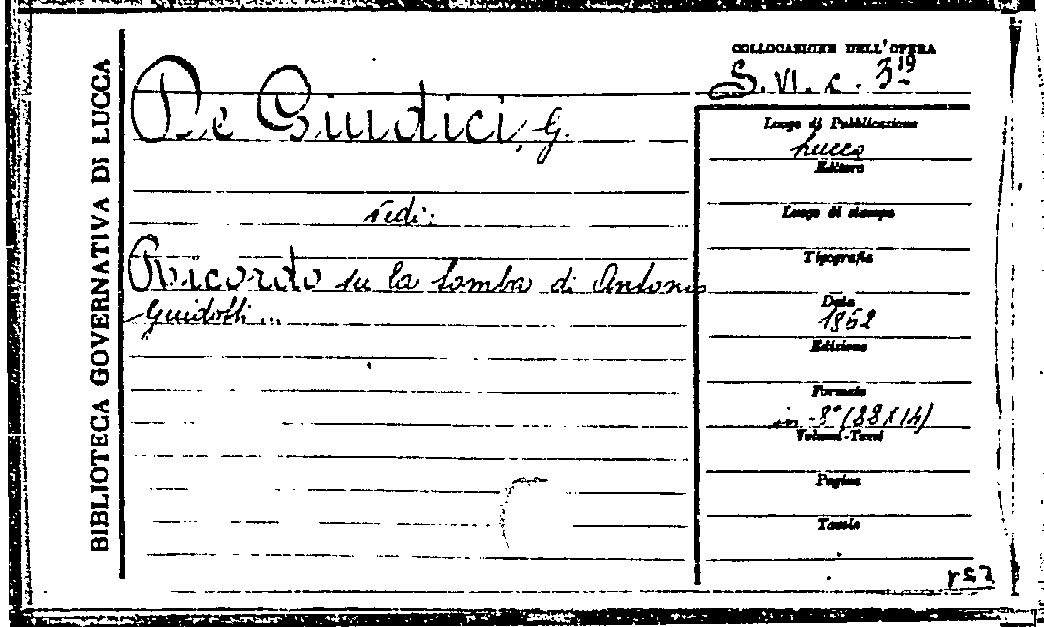 BIBLIOTECA GOVERNATIVA DI LUCCA
De Giudici, G.
vedi:
Ricordo su la tomba di Antonio
Guidotti...
COLLOCAZIONE DELL'OPERA
S. VI. c. 3 19
Luogo di Pubblicazione
Lucca
Editore
Luogo di stampa
Tipografia
Data
1862
Edizione
Formato
in-8° (22x14)
Volumi-Tomi
Pagine
Tavole